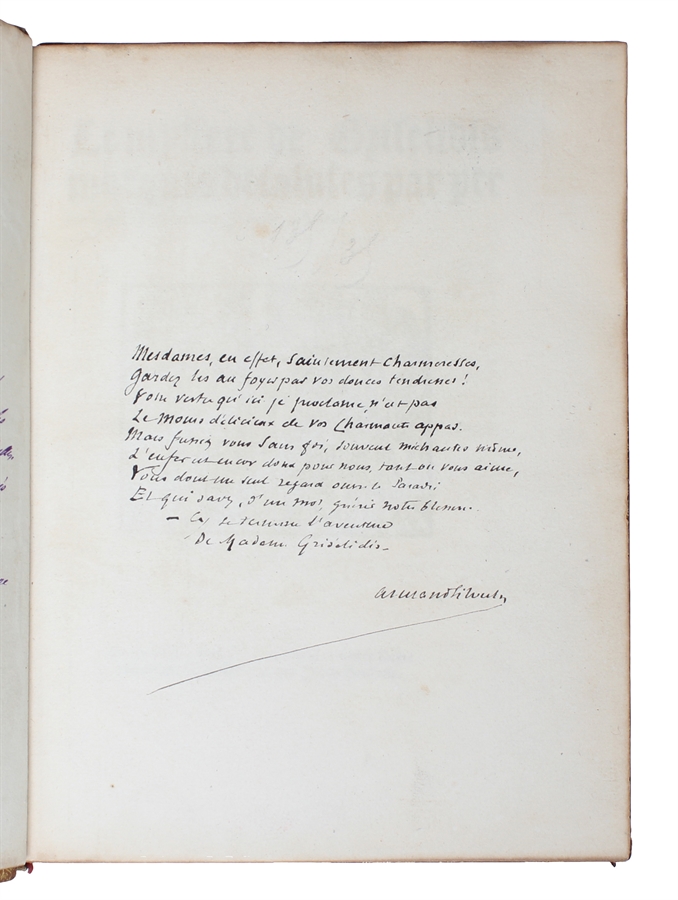 Mesdames, en effet, saintement charmeresses,
Gardez les au foyer par vos douces tendresses !
Votre vertu qu'ici je proclame, n'est pas
Le moins délicieux de vos charmants appas.
Mais fussiez vous sans foi, souvent méchantes même,
L'enfer est encor doux pour nous, tant on vous aime,
Vous dont un seul regard ouvre le Paradis
Et qui savez, d'un mot, guérir notre blessure.
— Ici se termine l'aventure
De Madame Grisélidis_
Armand Silvestre